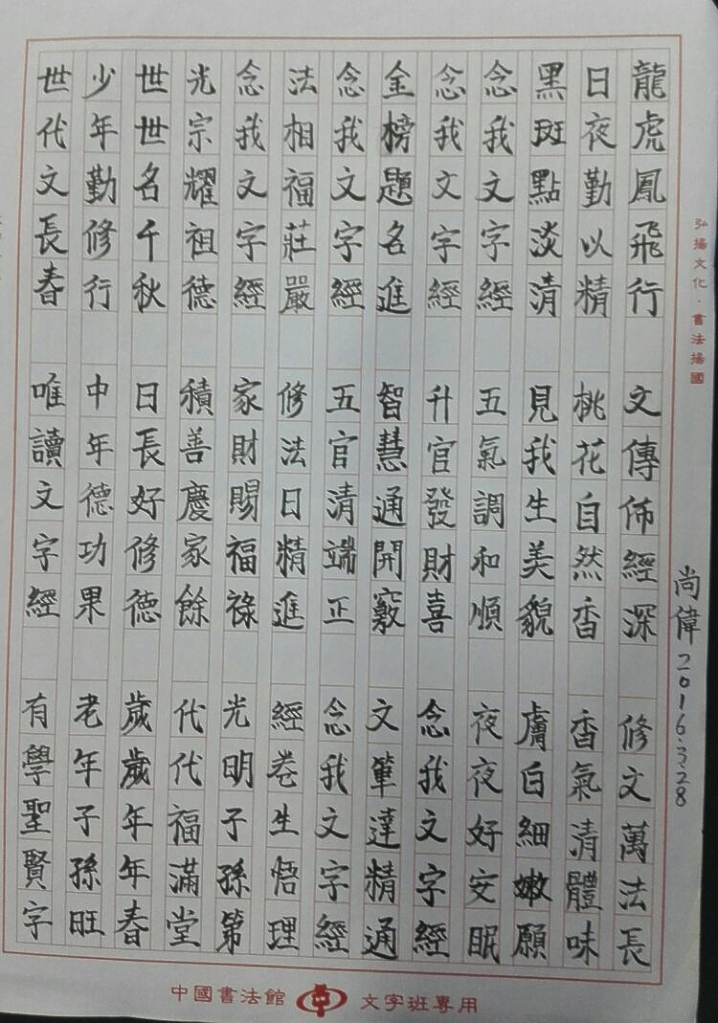 弘揚文化·書法揚國
尚偉2016.3.28
龍虎鳳飛行 文傳佈經深 修文萬法長
日夜勤以精 桃花自然香 香氣清體味
黑斑點淡清 見我生美貌 膚白細嫩願
念我文字經 五氣調和順 夜夜好安眠
念我文字經 升官發財喜 念我文字經
金榜題名進 智慧通開竅 文筆達精通
念我文字經 五官清端正 念我文字經
法相福莊嚴 修法日精進 經卷生悟理
念我文字經 家財賜福祿 光明子孫第
光宗耀祖德 積善慶家餘 代代福滿堂
世世名千秋 日長好修德 歲歲年年春
少年勤修行 中年德功果 老年子孫旺
世代文長春 唯讀文字經 有學聖賢字
中國書法館 文字班專用